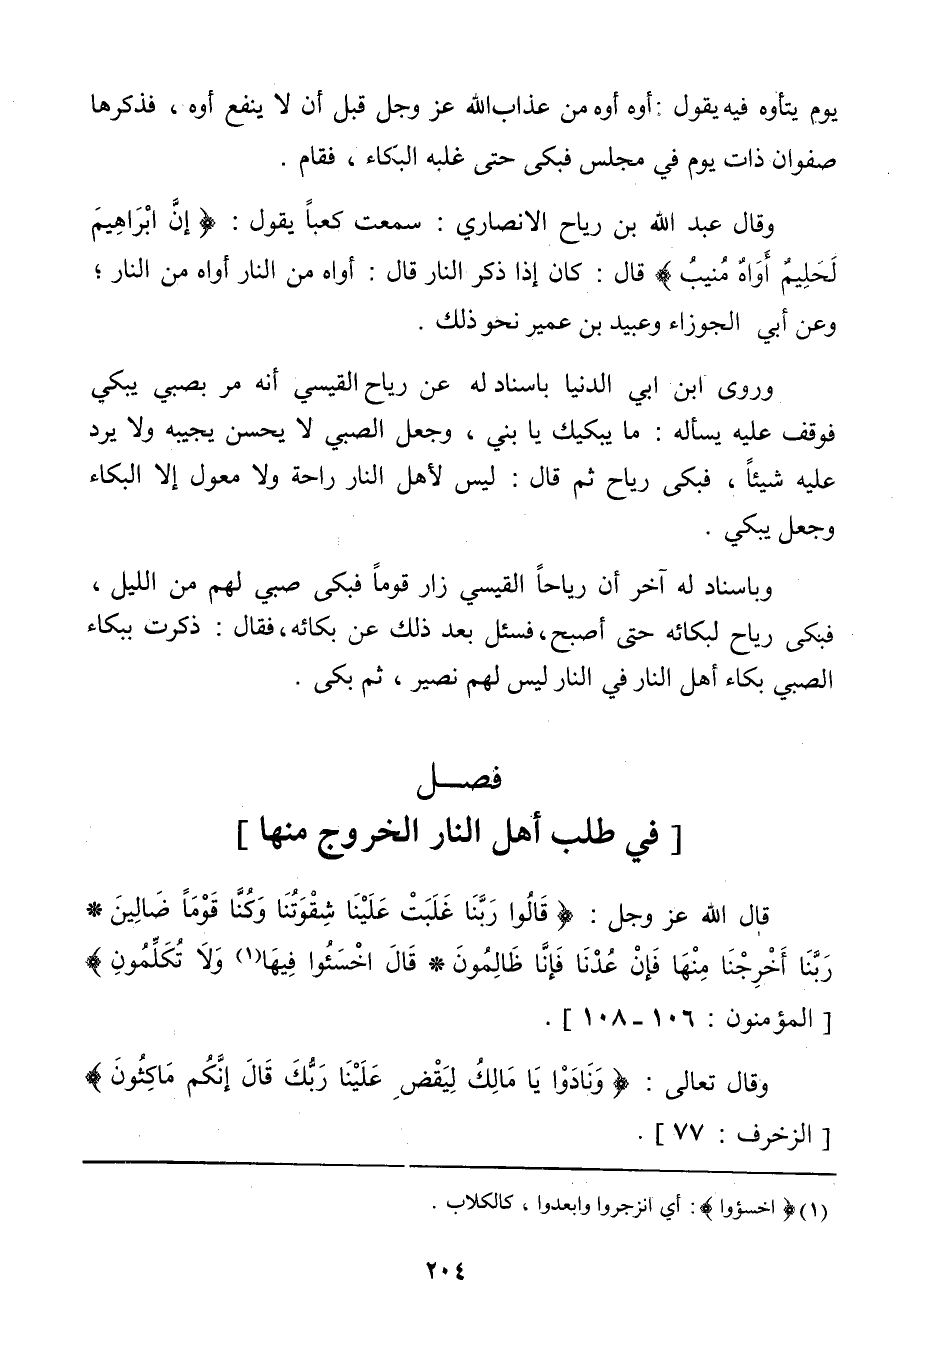 يوم يتأوه فيه يقول : أوه أوه من عذاب الله عز وجل قبل أن لا ينفع أوه ، فذكرها
صفوان ذات يوم في مجلس فبكى حتى غلبه البكاء ، فقام .
وقال عبد الله بن رياح الانصاري : سمعت كعباً يقول : ﴿ إنَّ ابْرَاهِيمَ
لَحَلِيمٌ أَوَاهٌ مُنِيبٌ ﴾ قال : كان إذا ذكر النار قال : أواه من النار أواه من النار ؛
وعن أبي الجوزاء وعبيد بن عمير نحو ذلك .
وروى ابن ابي الدنيا باسناد له عن رياح القيسي أنه مر بصبي يبكي
فوقف عليه يسأله : ما يبكيك يا بني ، وجعل الصبي لا يحسن يجيبه ولا يرد
عليه شيئاً ، فبكى رياح ثم قال : ليس لأهل النار راحة ولا معول إلا البكاء
وجعل يبكي .
وباسناد له آخر أن رياحاً القيسي زار قوماً فبكى صبي لهم من الليل ،
فبكى رياح لبكائه حتى أصبح، فسئل بعد ذلك عن بكائه، فقال : ذكرت ببكاء
الصبي بكاء أهل النار في النار ليس لهم نصير ، ثم بكى .
فصـــل
[ في طلب أهل النار الخروج منها ]
قال الله عز وجل : ﴿ قَالُوا رَبَّنَا غَلَبَتْ عَلَيْنَا شِقْوَتُنَا وَكُنَّا قَوْمَاً ضَالِينَ *
رَبَّنَا أَخْرِجْنَا مِنْهَا فَإِنْ عُدْنَا فَإِنَّا ظَالِمُونَ * قَالَ اخْسَئُوا فِيهَا(١) وَلَا تُكَلِّمُونِ ﴾
[ المؤمنون : ١٠٦ - ١٠٨ ] .
وقال تعالى : ﴿ وَنَادَوْا يَا مَالِكُ لِيَقْضِ عَلَيْنَا رَبُّكَ قَالَ إِنَّكُم مَاكِثُونَ ﴾
[ الزخرف : ٧٧ ] .
(١) ﴿ اخسؤوا ﴾: أي انزجروا وابعدوا ، كالكلاب .
٢٠٤